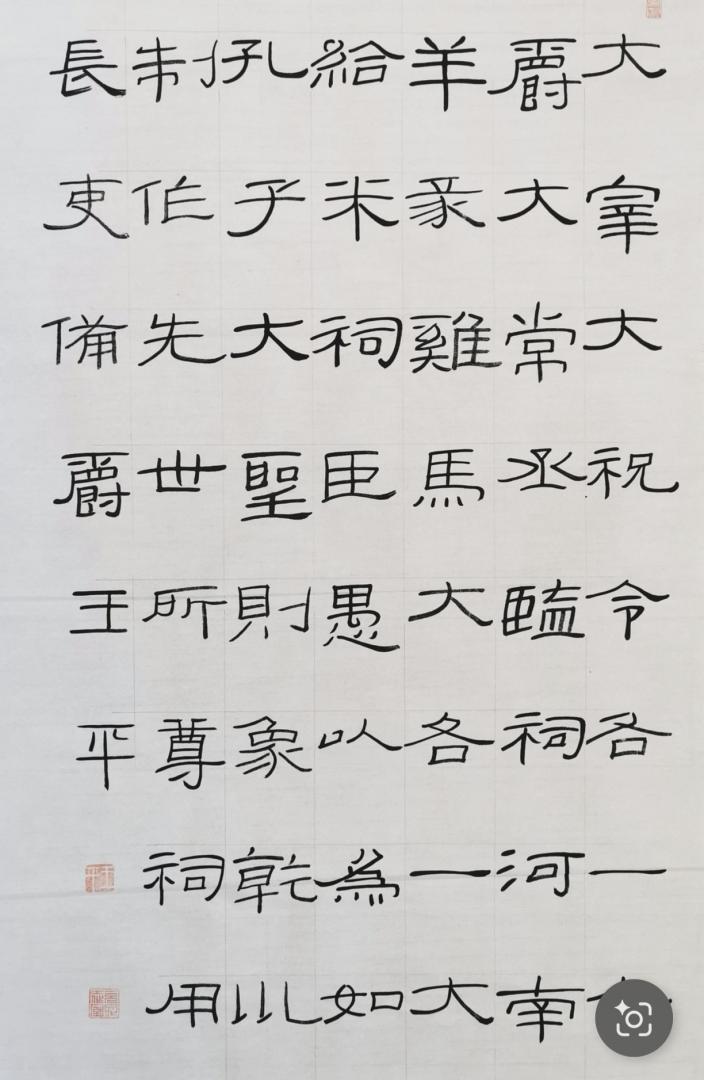 大宰大祝令各一
爵大常丞監祠河南
羊豕雞馬大各一大
給米祠臣愚以為如
孔子大聖則象乾川
制作先世所尊祠用
長吏備爵王平